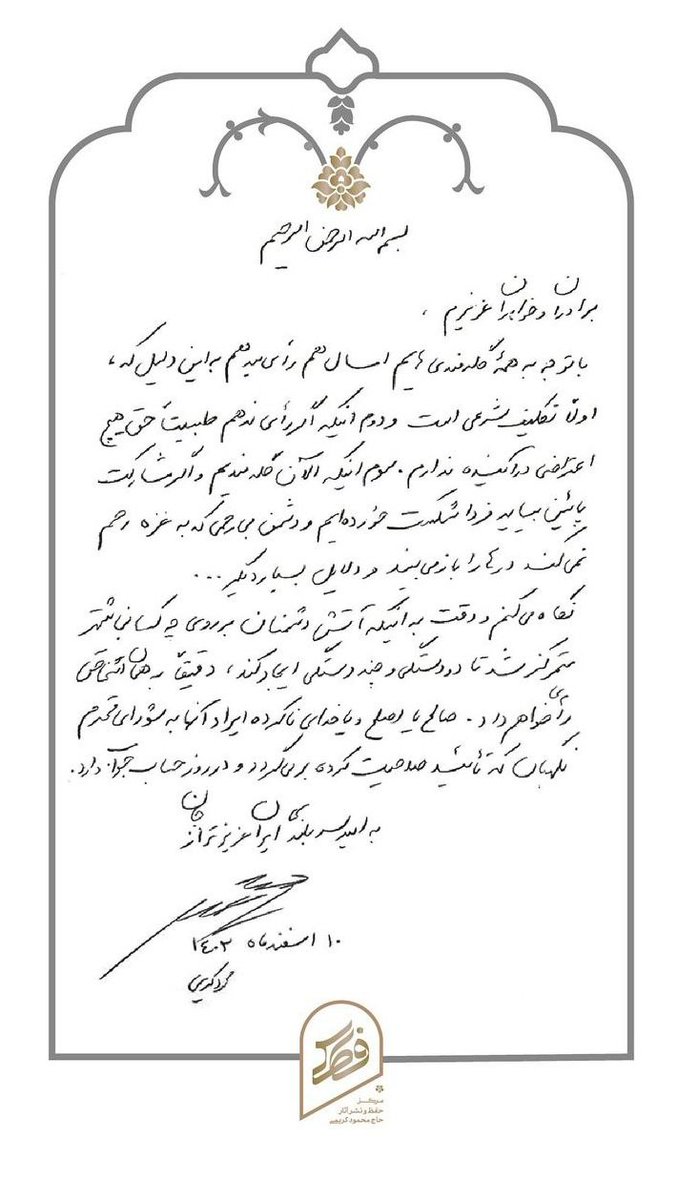 بسم الله الرحمن الرحیم
برادران و خواهران عزیزم ،
با توجه به همهٔ گله‌مندی هایم امسال هم رأی میدهم به این دلیل که ،
اولاً تکلیف شرعی است و دوم اینکه اگر رأی ندهم طبیعیتاً حق هیچ
اعتراضی در آینده ندارم . سوم اینکه الآن گله مندیم و اگر مشارکت
پائین بیاید فردا شکست خورده‌ایم و دشمن بی رحمی که به غزه رحم
نمی‌کند درها را باز می‌بیند و دلایل بسیار دیگر ...
نگاه می‌کنم و دقت به اینکه آتش دشمنان بر روی چه کسانی بیشتر
متمرکز شد تا دودستگی و چند دستگی ایجاد کند ، دقیقاً به همان اشخاص
رأی خواهم داد . صالح یا اصلح و یا خدای ناکرده ایراد آنها به شورای محترم
نگهبان که تأئید صلاحیت کرده بر می‌گردد و در روز حساب جوابی دارد .
به امید سربلندی ایران عزیزتر از جان
۱۰ اسفند ماه ۱۴۰۲
محمود کریمی
فطرس
مرکز
حفظ و نشر آثار
حاج محمود کریمی